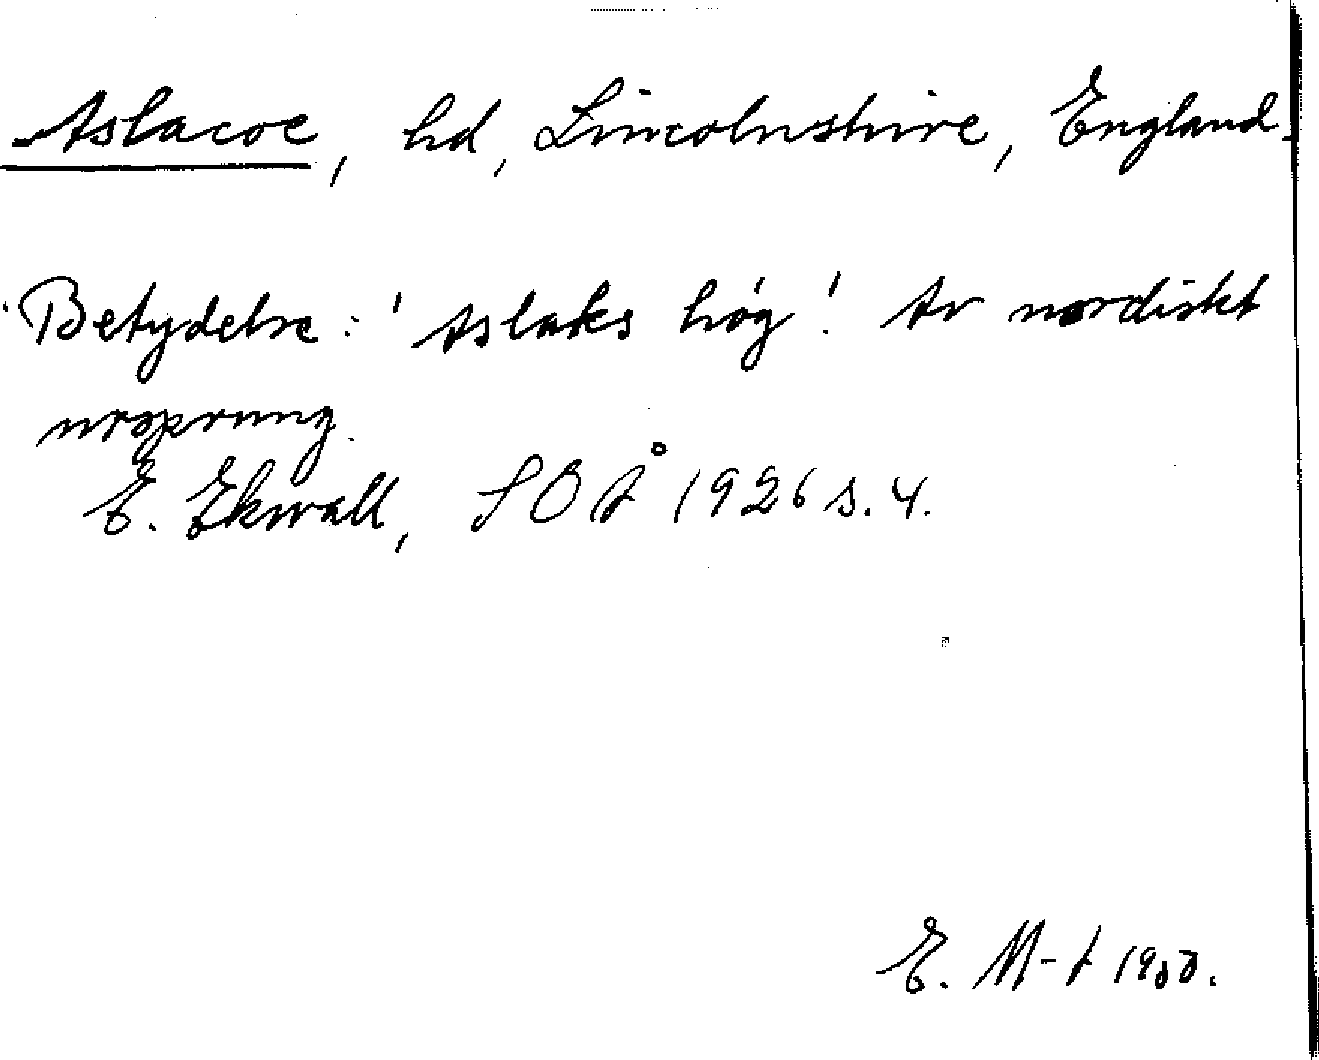 Aslacoe, hd, Lincolnshire, England.
Betydelse: 'Aslaks hög'. Av nordiskt
ursprung.
E. Ekwall, SOÅ 1926 s. 4.
E. M-t